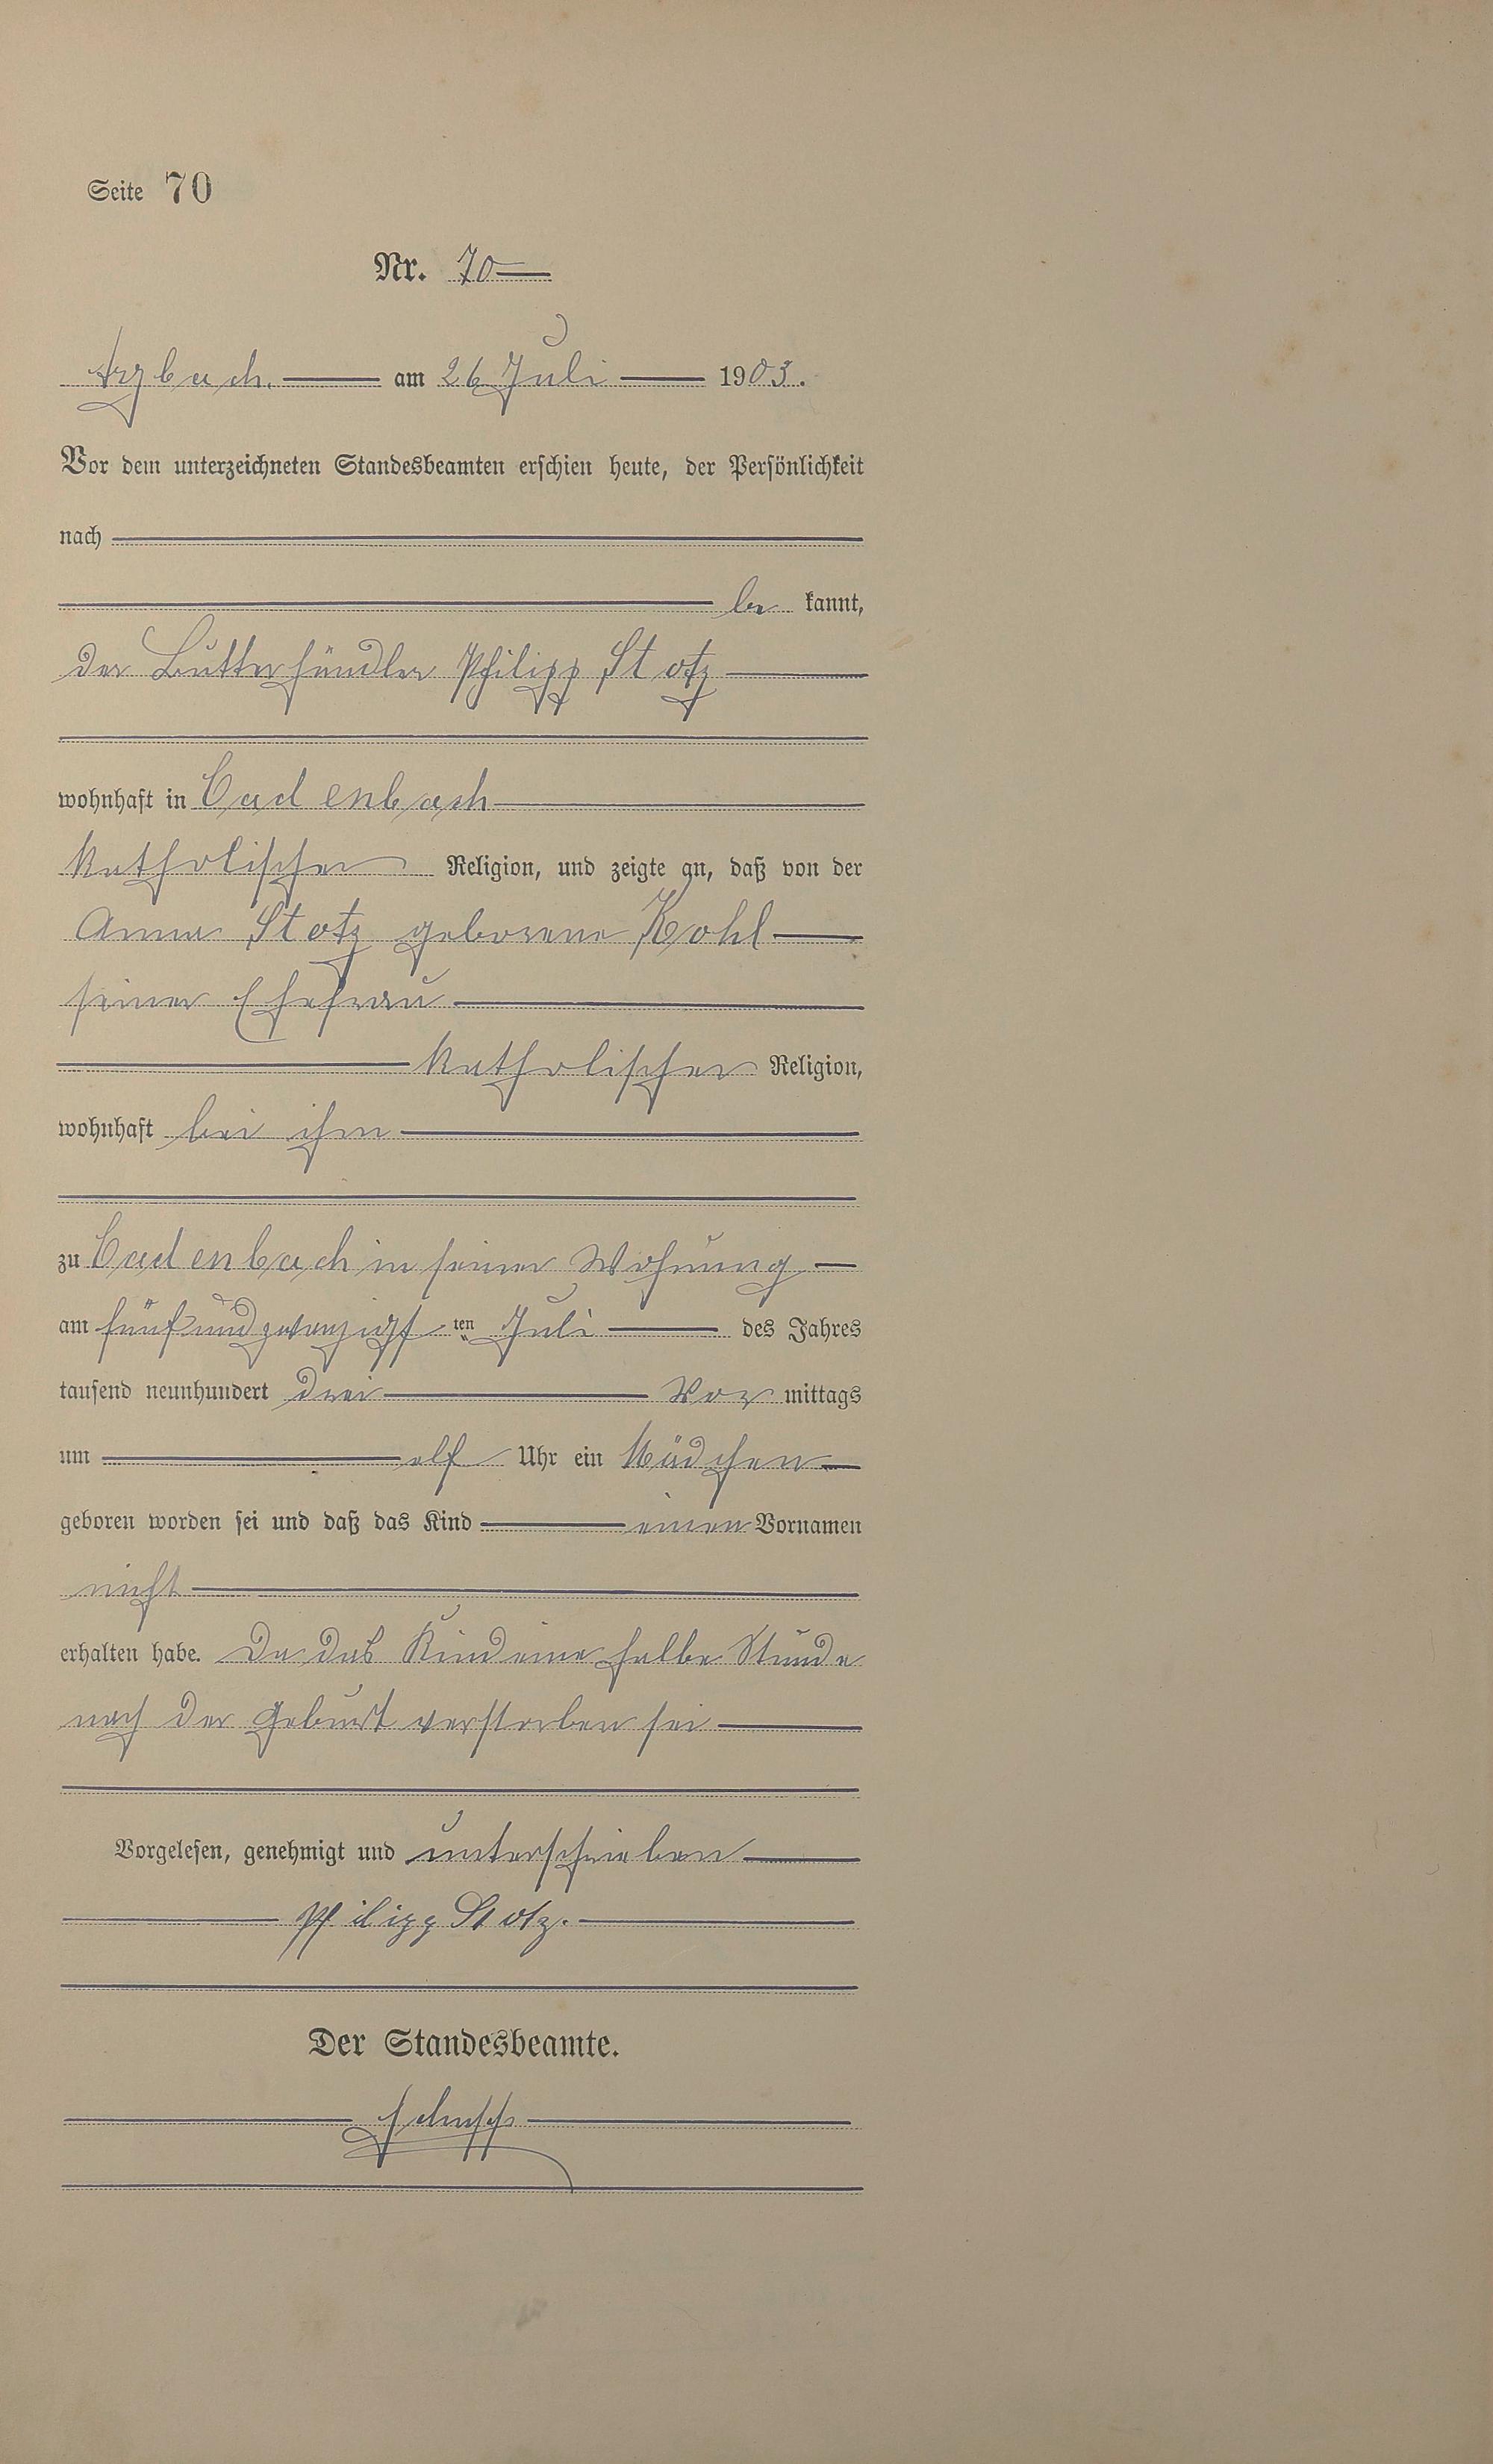 Seite 70
Nr. 70
Arzbach. am 26 Juli 1903.
Vor dem unterzeichneten Standesbeamten erschien heute, der Persönlichkeit
nach
be kannt,
der Butterhändler Philipp Stotz
wohnhaft in Cadenbach
katholischer Religion, und zeigte an, daß von der
Anna Stotz geborene Kohl
seiner Ehefrau
katholischer Religion,
wohnhaft bei ihm
zu Cadenbach in seiner Wohnung
am fünfundzwanzigsten Juli des Jahres
tausend neunhundert drei Vor mittags
um elf Uhr ein Mädchen
geboren worden sei und daß das Kind einen Vornamen
nicht
erhalten habe. Da das Kind eine halbe Stunde
nach der Geburt verstorben sei
Vorgelesen, genehmigt und unterschrieben
Philipp Stotz.
Der Standesbeamte.